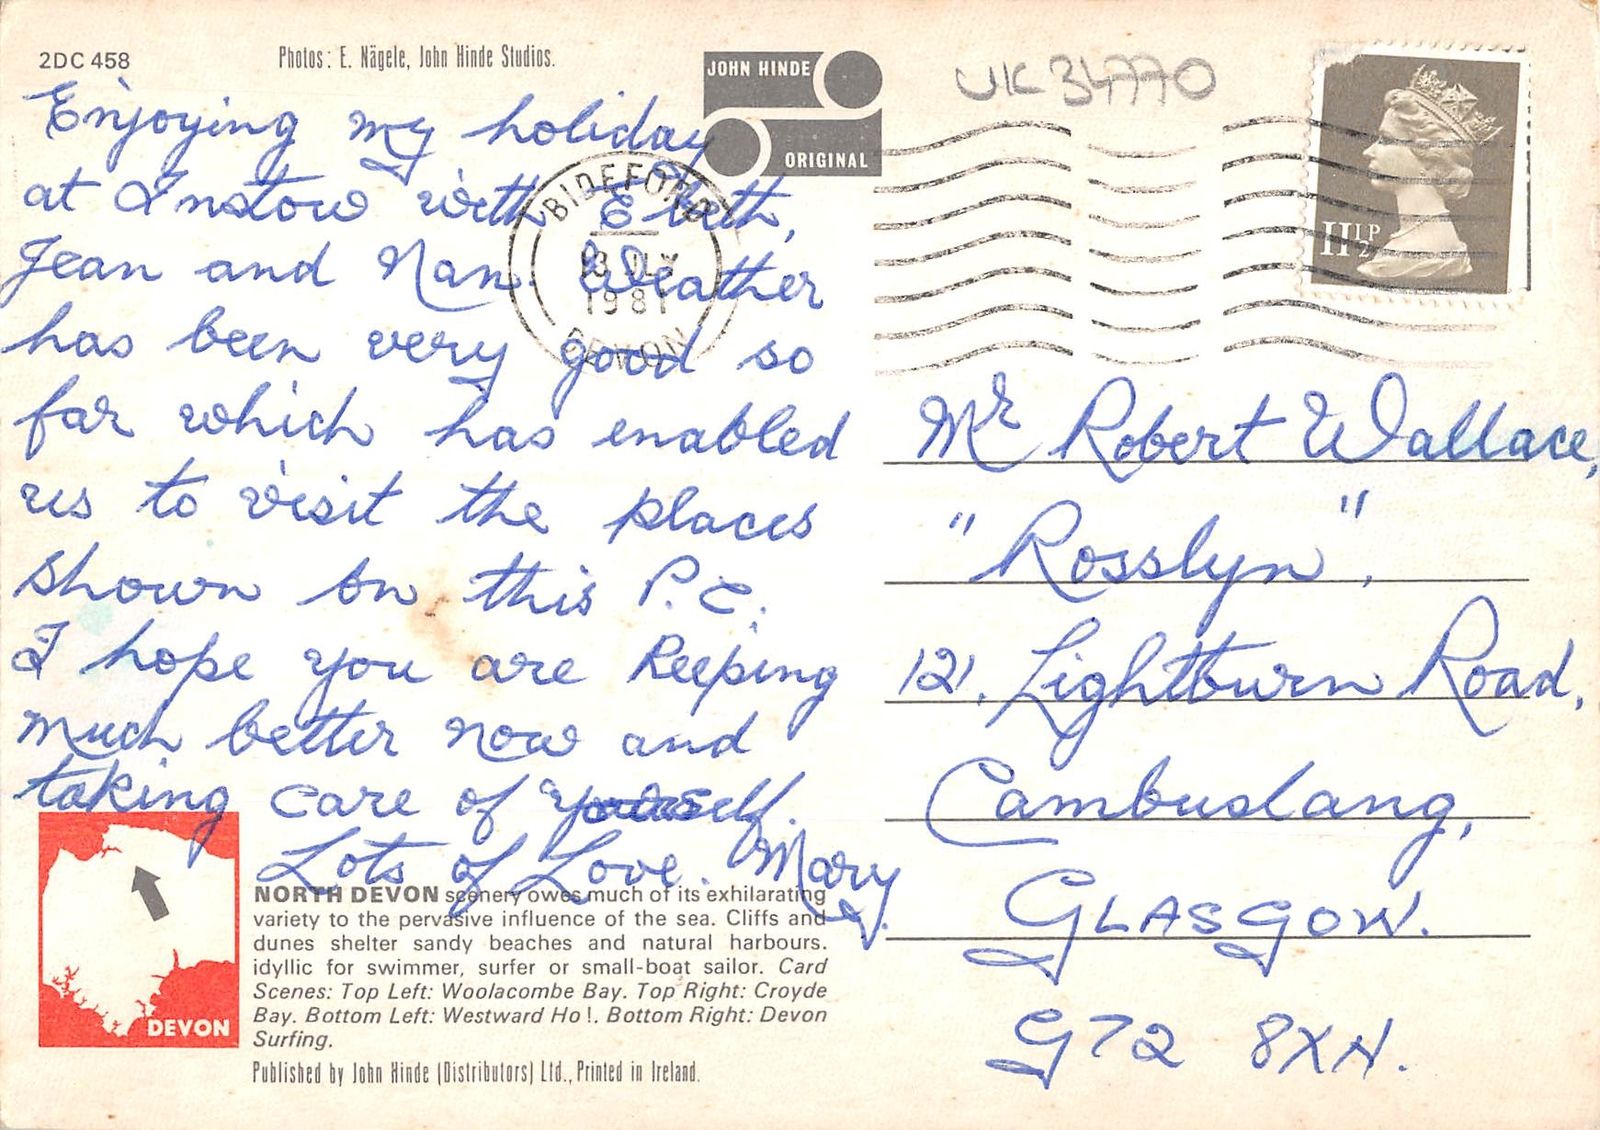 2DC 458
Photos: E. Nägele, John Hinde Studios.
JOHN HINDE
ORIGINAL
UK 34770
BIDEFORD
JLY
1981
DEVON
11½P
Enjoying my holiday
at Instow with E'beth,
Jean and Nan. Weather
has been very good so
far which has enabled
us to visit the places
shown on this P.C.
I hope you are keeping
much better now and
taking care of yourself.
Lots of Love. Mary.
Mr Robert Wallace,
"Rosslyn",
121, Lightburn Road,
Cambuslang,
GLASGOW.
G72 8XH.
DEVON
NORTH DEVON scenery owes much of its exhilarating
variety to the pervasive influence of the sea. Cliffs and
dunes shelter sandy beaches and natural harbours.
idyllic for swimmer, surfer or small-boat sailor. Card
Scenes: Top Left: Woolacombe Bay. Top Right: Croyde
Bay. Bottom Left: Westward Ho!. Bottom Right: Devon
Surfing.
Published by John Hinde (Distributors) Ltd., Printed in Ireland.